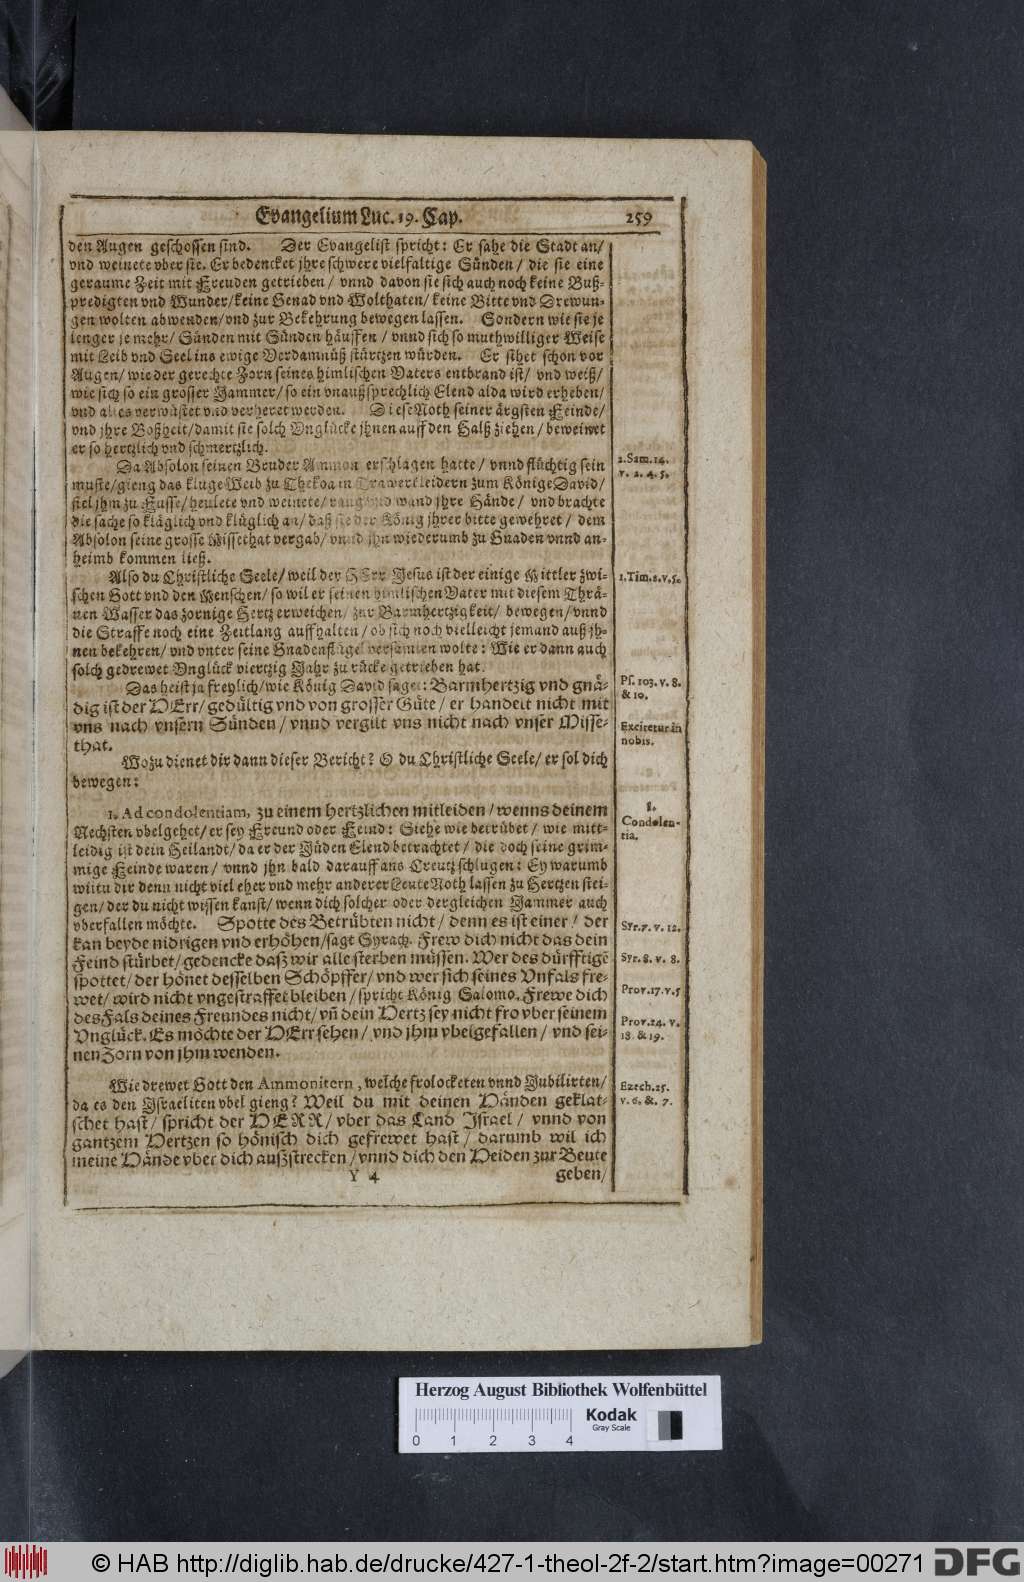 Evangelium Luc. 19. Cap. 259
den Augen geschossen sind. Der Evangelist spricht: Er sahe die Stadt an/
vnd weinete vber sie. Er bedencket jhre schwere vielfaltige Sünden/ die sie eine
geraume Zeit mit Freuden getrieben/ vnnd davon sie sich auch noch keine Buß-
predigten vnd Wunder/ keine Genad vnd Wolthaten/ keine Bitte vnd Drewun-
gen wolten abwenden/ vnd zur Bekehrung bewegen lassen. Sondern wie sie je
lenger je mehr/ Sünden mit Sünden häuffen/ vnnd sich so muthwilliger Weise
mit Leib vnd Seel ins ewige Verdamnüß stürtzen würden. Er sihet schon vor
Augen/ wie der gerechte Zorn seines himlischen Vaters entbrand ist/ vnd weiß/
wie sich so ein grosser Jammer/ so ein vnaußsprechlich Elend alda wird erheben/
vnd alles verwüstet vnd verheret werden. Diese Noth seiner ärgsten Feinde/
vnd jhre Boßheit/ damit sie solch Vnglücke jhnen auff den Halß ziehen/ beweinet
er so hertzlich vnd schmertzlich.
Da Absolon seinen Bruder Ammon erschlagen hatte/ vnnd flüchtig sein
muste/ gieng das kluge Weib zu Thekoa in Trawerkleidern zum Könige David/
fiel jhm zu Fusse/ heulete vnd weinete/ rang vnd wand jhre Hände/ vnd brachte
die sache so kläglich vnd klüglich an/ daß sie der König jhrer bitte gewehret/ dem
Absolon seine grosse Missethat vergab/ vnnd jhn wiederumb zu Gnaden vnnd an-
heimb kommen ließ.
2. Sam. 14.
v. 2. 4. 5.
Also du Christliche Seele/ weil der HErr Jesus ist der einige Mittler zwi-
schen Gott vnd den Menschen/ so wil er seinen himlischen Vater mit diesem Thrä-
nen Wasser das zornige Hertz erweichen/ zur Barmhertzigkeit/ bewegen/ vnnd
die Straffe noch eine Zeitlang auffhalten/ ob sich noch vielleicht jemand auß jh-
nen bekehren/ vnd vnter seine Gnadenflügel versamlen wolte: Wie er dann auch
solch gedrewet Vnglück viertzig Jahr zu rücke getrieben hat.
1. Tim. 2. v. 5.
Das heist ja freylich/ wie König David saget: Barmhertzig vnd gnä-
dig ist der HErr/ gedültig vnd von grosser Güte/ er handelt nicht mit
vns nach vnsern Sünden/ vnnd vergilt vns nicht nach vnser Misse-
that.
Ps. 103. v. 8.
& 10.
Excitetur in
nobis.
Wozu dienet dir dann dieser Bericht? O du Christliche Seele/ er sol dich
bewegen:
1. Ad condolentiam, zu einem hertzlichen mitleiden/ wenns deinem
Nechsten vbel gehet/ er sey Freund oder Feind: Siehe wie betrübet/ wie mitt-
leidig ist dein Heilandt/ da er der Jüden Elend betrachtet/ die doch seine grim-
mige Feinde waren/ vnnd jhn bald darauff ans Creutz schlugen: Ey warumb
wiltu dir denn nicht viel eher vnd mehr anderer Leute Noth lassen zu Hertzen stei-
gen/ der du nicht wissen kanst/ wenn dich solcher oder dergleichen Jammer auch
vberfallen möchte. Spotte des Betrübten nicht/ denn es ist einer/ der
kan beyde nidrigen vnd erhöhen/ sagt Syrach. Frew dich nicht das dein
Feind stürbet/ gedencke dasz wir alle sterben müssen. Wer des dürfftige
spottet/ der hönet desselben Schöpffer/ vnd wer sich seines Vnfals fre-
wet/ wird nicht vngestraffet bleiben/ spricht König Salomo. Frewe dich
des Fals deines Freundes nicht/ vñ dein Hertz sey nicht fro vber seinem
Vnglück. Es möchte der HErr sehen/ vnd jhm vbelgefallen/ vnd sei-
nen Zorn von jhm wenden.
1.
Condolen-
tia.
Syr. 7. v. 12.
Syr. 8. v. 8.
Prov. 17. v. 5
Prov. 24. v.
18. & 19.
Wie drewet Gott den Ammonitern, welche frolocketen vnnd Jubilirten/
da es den Israeliten vbel gieng? Weil du mit deinen Händen geklat-
schet hast/ spricht der HERR/ vber das Land Israel/ vnnd von
gantzem Hertzen so hönisch dich gefrewet hast/ darumb wil ich
meine Hände vber dich auszstrecken/ vnnd dich den Heiden zur Beute
Ezech. 25.
v. 6. & 7.
Y 4 geben/
Herzog August Bibliothek Wolfenbüttel
Kodak
Gray Scale
0 1 2 3 4
© HAB http://diglib.hab.de/drucke/427-1-theol-2f-2/start.htm?image=00271 DFG